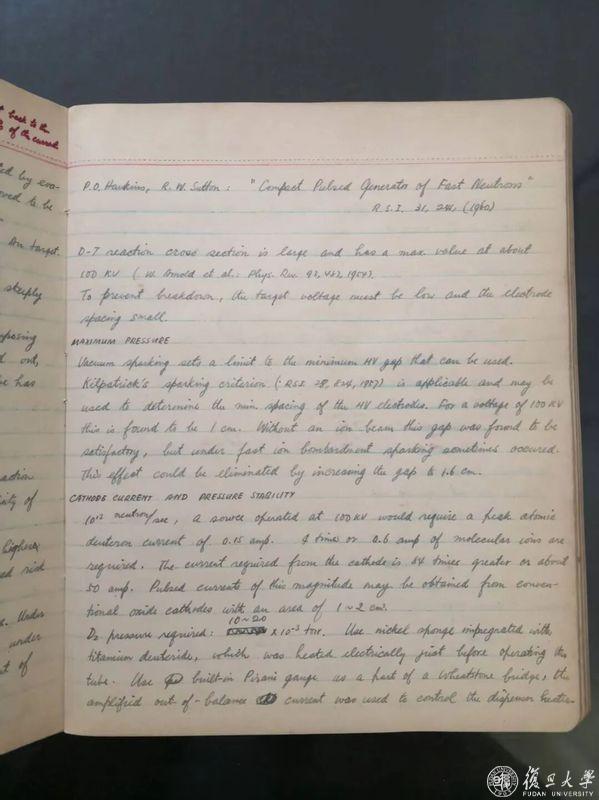 back to the
of the current
ted by eva-
oved to be
An target.
steeply
pposing
d out,
ve has
action
ity of
higher
ed rid
s. Under
under
t of
P.O. Hawkins, R.W. Sutton: "Compact Pulsed Generator of Fast Neutrons"
R.S.I. 31, 241, (1960)
D-T reaction cross section is large and has a max. value at about
100 KV ( W. Arnold et al.: Phys. Rev. 93, 483, 1954).
To prevent breakdown, the target voltage must be low and the electrode
spacing small.
MAXIMUM PRESSURE
Vacuum sparking sets a limit to the minimum HV gap that can be used.
Kilpatrick's sparking criterion (: RSI 28, 824, 1957) is applicable and may be
used to determine the min. spacing of the HV electrodes. For a voltage of 100 KV
this is found to be 1 cm. Without an ion beam this gap was found to be
satisfactory, but under fast ion bombardment sparking sometimes occured.
This effect could be eliminated by increasing the gap to 1.6 cm.
CATHODE CURRENT AND PRESSURE STABILITY
neutron/sec, a source operated at 100 KV would require a peak atomic
deuteron current of 0.15 amp. 4 time or 0.6 amp of molecular ions are
required. The current required from the cathode is 84 times greater or about
50 amp. Pulsed currents of this magnitude may be obtained from conven-
tional oxide cathodes with an area of 1~2 cm.
10~20
D2 pressure required: x 10⁻³ torr. Use nickel sponge impregnated with
titanium deuteride, which was heated electrically just before operating the
tube. Use built-in Pirani gauge as a part of a Wheatstone bridge, the
amplified out-of-balance current was used to control the dispenser heater
復旦大學
FUDAN UNIVERSITY